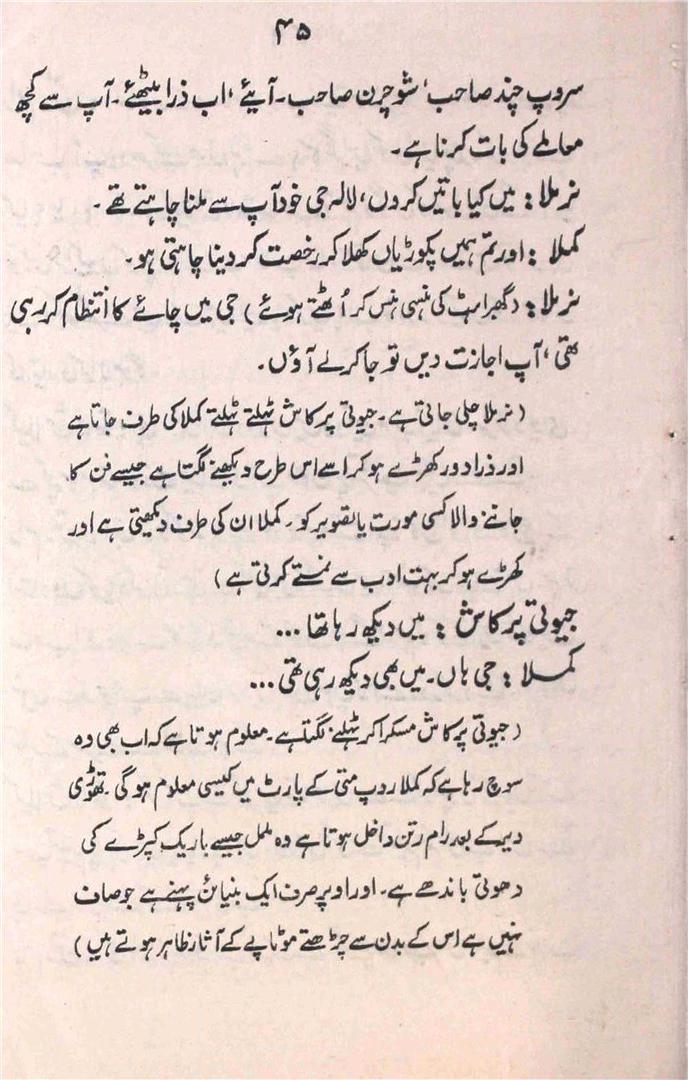 ۴۵
سروپ چند صاحب، شوچرن صاحب۔ آیئے، اب ذرا بیٹھئے۔ آپ سے کچھ
معاملے کی بات کرنا ہے۔
نرملا: میں کیا باتیں کروں، لالہ جی خود آپ سے ملنا چاہتے تھے۔
کملا: اور تم ہمیں پکوڑیاں کھلا کر رخصت کر دینا چاہتی ہو۔
نرملا: (گھبراہٹ کی ہنسی ہنس کر اُٹھتے ہوئے) جی میں چائے کا انتظام کر رہی
تھی، آپ اجازت دیں تو جا کر لے آؤں۔
(نرملا چلی جاتی ہے۔ جیوتی پرکاش ٹہلتے ٹہلتے کملا کی طرف جاتا ہے
اور ذرا دور کھڑے ہو کر اسے اس طرح دیکھنے لگتا ہے جیسے فن کا
جاننے والا کسی مورت یا تصویر کو۔ کملا ان کی طرف دیکھتی ہے اور
کھڑے ہو کر بہت ادب سے نمستے کرتی ہے)
جیوتی پرکاش: میں دیکھ رہا تھا ...
کملا: جی ہاں۔ میں بھی دیکھ رہی تھی ...
(جیوتی پرکاش مسکرا کر ٹہلنے لگتا ہے۔ معلوم ہوتا ہے کہ اب بھی وہ
سوچ رہا ہے کہ کملا روپ متی کے پارٹ میں کیسی معلوم ہوگی۔ تھوڑی
دیر کے بعد رام رتن داخل ہوتا ہے وہ ململ جیسے باریک کپڑے کی
دھوتی باندھے ہے۔ اور اوپر صرف ایک بنیائن پہنے ہے جو صاف
نہیں ہے اس کے بدن سے چڑھتے موٹاپے کے آثار ظاہر ہوتے ہیں)